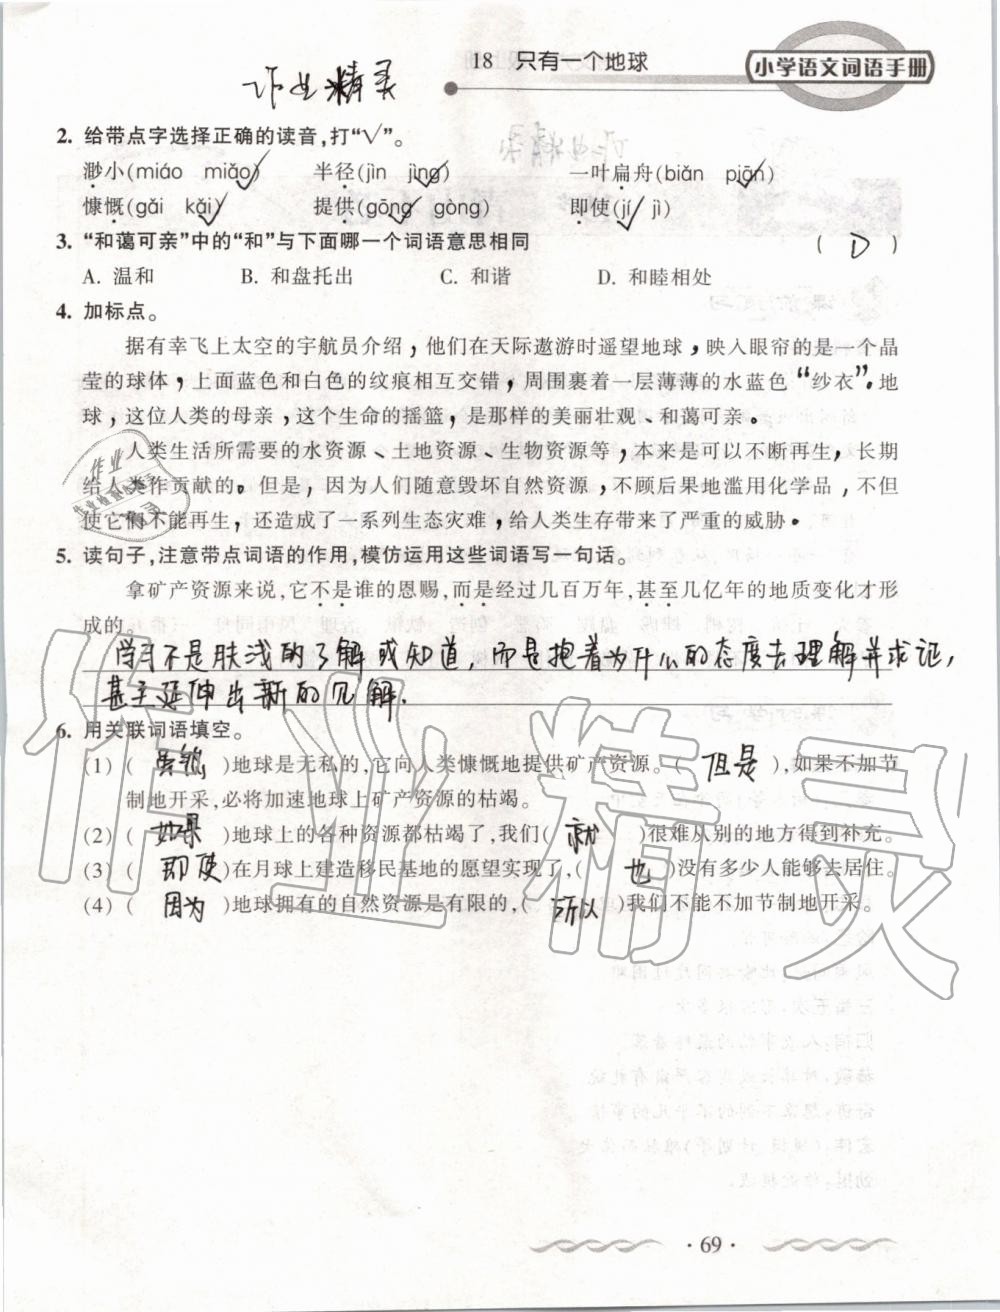 18 只有一个地球
小学语文词语手册
作业精灵
2. 给带点字选择正确的读音,打“√”。
渺小(miáo miǎo√) 半径(jìn jìng√) 一叶扁舟(biǎn piān√)
慷慨(gǎi kǎi√) 提供(gōng√ gòng) 即使(jí√ jì)
3. “和蔼可亲”中的“和”与下面哪一个词语意思相同 ( D )
A. 温和 B. 和盘托出 C. 和谐 D. 和睦相处
4. 加标点。
据有幸飞上太空的宇航员介绍，他们在天际遨游时遥望地球，映入眼帘的是一个晶
莹的球体，上面蓝色和白色的纹痕相互交错，周围裹着一层薄薄的水蓝色“纱衣”。地
球，这位人类的母亲，这个生命的摇篮，是那样的美丽壮观、和蔼可亲。
人类生活所需要的水资源、土地资源、生物资源等，本来是可以不断再生，长期
给人类作贡献的。但是，因为人们随意毁坏自然资源，不顾后果地滥用化学品，不但
使它们不能再生，还造成了一系列生态灾难，给人类生存带来了严重的威胁。
5. 读句子,注意带点词语的作用,模仿运用这些词语写一句话。
拿矿产资源来说,它不是谁的恩赐,而是经过几百万年,甚至几亿年的地质变化才形
成的。
学习不是肤浅的了解或知道，而是抱着为什么的态度去理解并求证，
甚至延伸出新的见解.
6. 用关联词语填空。
(1) ( 虽然 )地球是无私的,它向人类慷慨地提供矿产资源。( 但是 ),如果不加节
制地开采,必将加速地球上矿产资源的枯竭。
(2) ( 如果 )地球上的各种资源都枯竭了,我们( 就 )很难从别的地方得到补充。
(3) ( 即使 )在月球上建造移民基地的愿望实现了,( 也 )没有多少人能够去居住。
(4) ( 因为 )地球拥有的自然资源是有限的,( 所以 )我们不能不加节制地开采。
作业精灵
· 69 ·